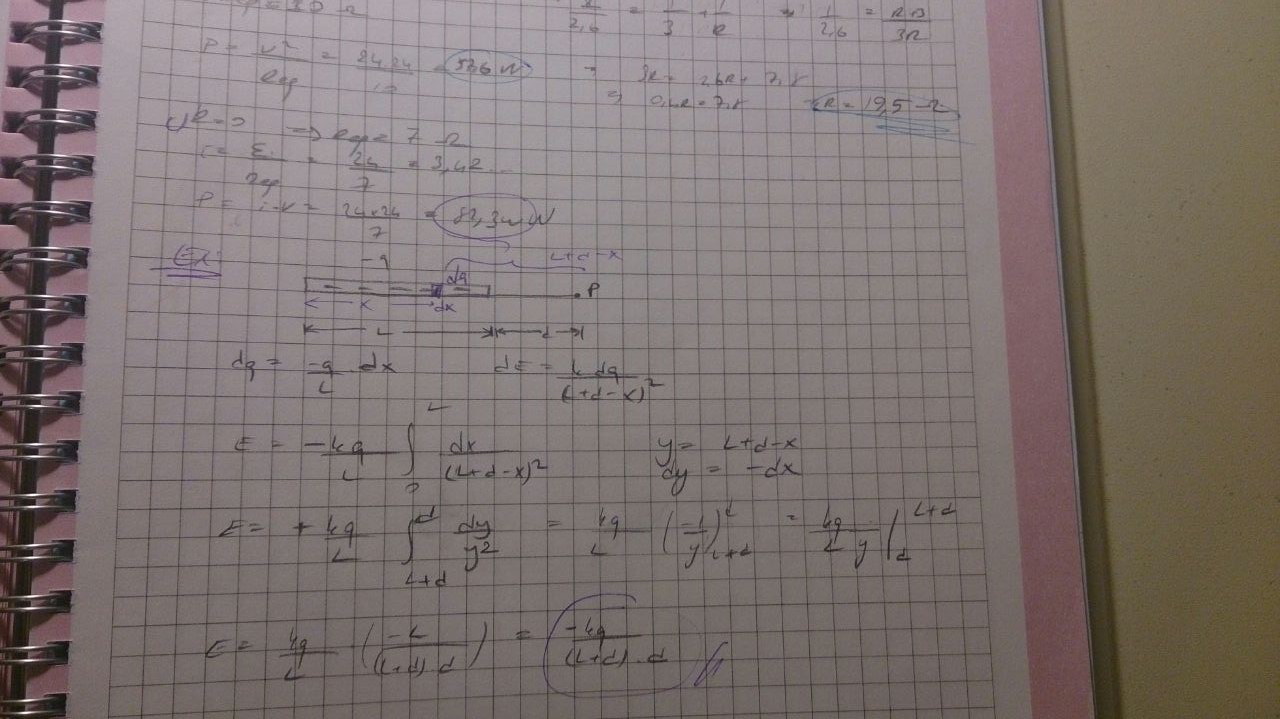 1/2,6 = 1/3 + 1/R
P = V²/Reş = 24.24/10 = 57,6 W
3R = 2,6R + 7,8
⇒ 0,4R = 7,8 R = 19,5 Ω
R=0 ⇒ Reş = 7 Ω
i = ε/Reş = 24/7 = 3,42...
P = i.V = 24x24/7 = 82,3 W
Ex:
-q dq L+d-x
x dx P
L d
dq = -q/L dx dE = k dq/(L+d-x)²
E = -kq/L ∫₀ᴸ dx/(L+d-x)² y = L+d-x
dy = -dx
E = +kq/L ∫_{L+d}^{d} dy/y² = kq/L (-1/y)_{L+d}^{d} = kq/L y |_{d}^{L+d}
E = kq/L (-L/(L+d) d) = -kq/(L+d).d